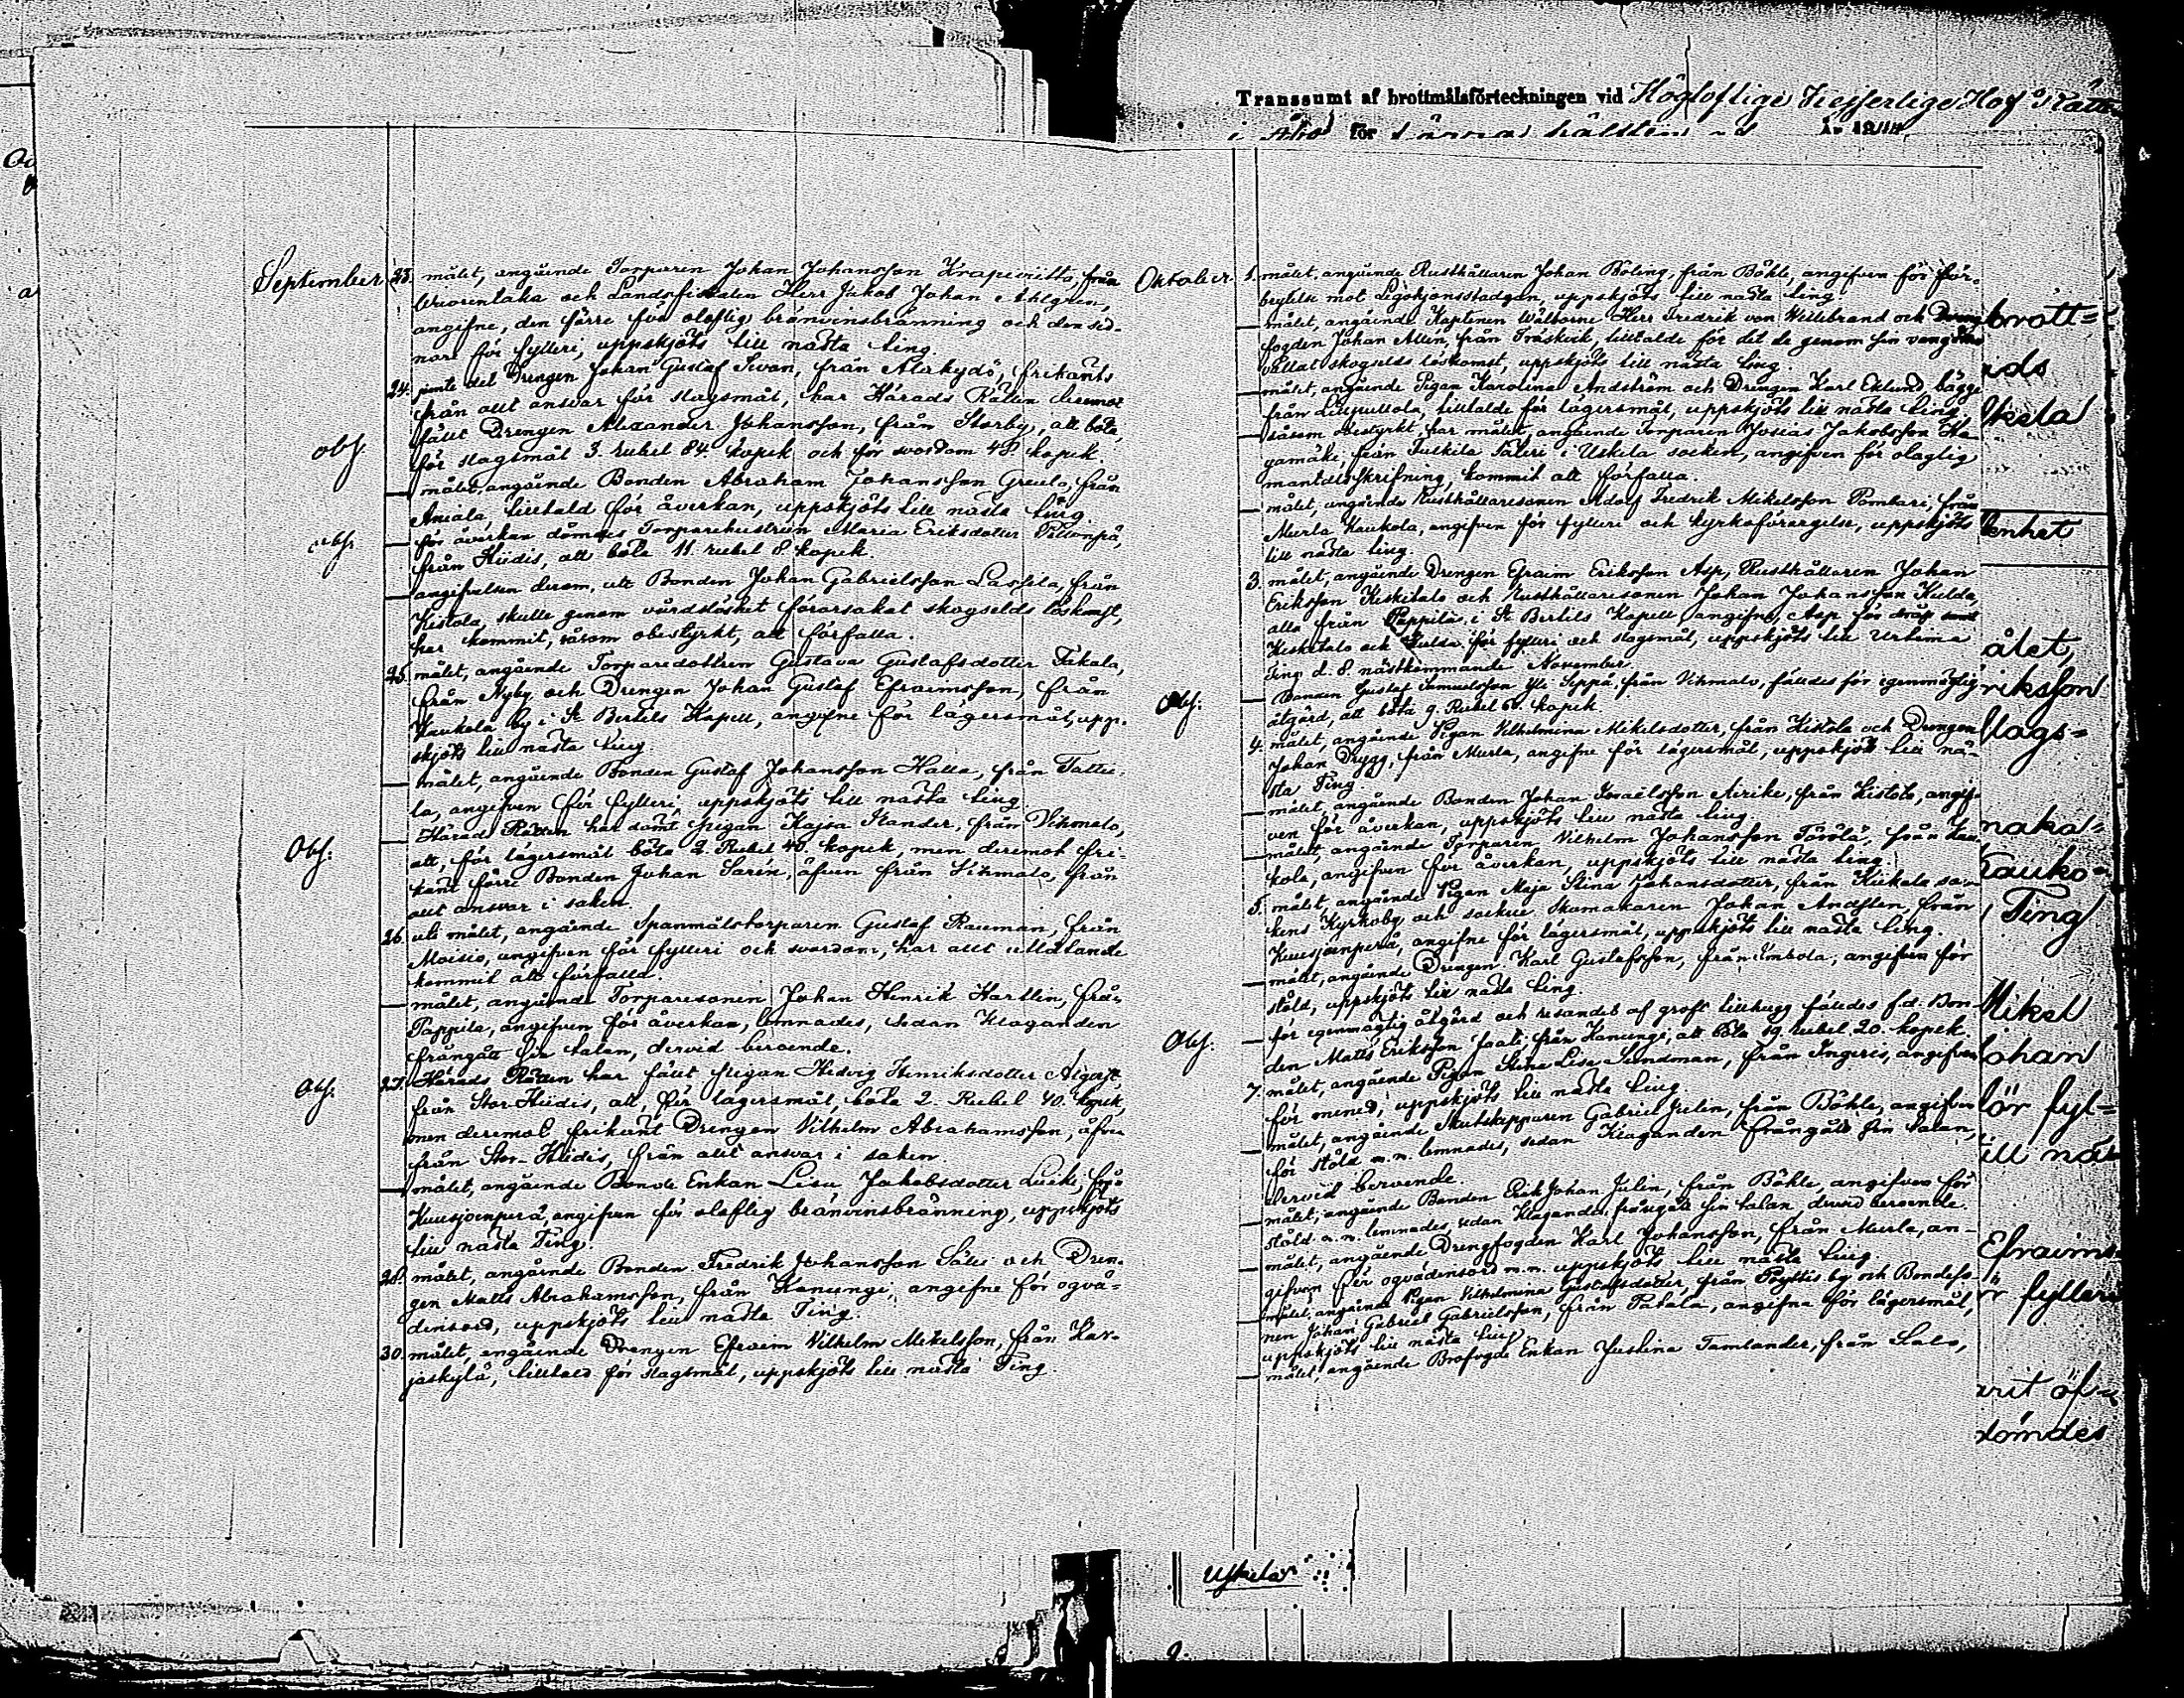 Transsumt af brottmålsförteckningen vid Högloflige Kejserlige Hof Rätten
i Åbo för
September 23. målet, angående Torparen Johan Johansson Krapuvietto, från
Wuorentaka och Landsfiskalen Herr Jakob Johan Ahlgren,
angifne, den förre för olaflig bränvinsbränning och den sed-
nare för fylleri, uppskjöts till nästa ting.
24. jemte det Drengen Johan Gustaf Sevon, från Alakydö, frikänts
från allt ansvar för slagsmål, har Härads Rätten deremot
obs. fällt Drengen Alexander Johansson, från Storby, att böta
för slagsmål 3. rubel 84. kopek och för svordom 48 kopek.
— målet, angående Bonden Abraham Johansson Greulo, från
Aniala, tilltald för åverkan, uppskjöts till nästa ting.
obs. — för åverkan dömdes Torparehustrun Maria Eriksdotter
från Hiidis, att böta 11 rubel 8 kopek.
— angifvelsen derom, att Bonden Johan Gabrielsson Lassila, från
Kistola, skulle genom vårdslöshet förorsakat skogselds löskomst,
har kommit, såsom obestyrkt, att förfalla.
25. målet, angående Torparedottren Gustava Gustafsdotter Takala,
från Nyby och Drengen Johan Gustaf Efraimsson, från
Kaukola by i St Bertils Kapell, angifne för lägersmål, upp-
skjöts till nästa ting.
— målet, angående Bonden Gustaf Johansson Halla, från Tattu-
la, angifven för fylleri, uppskjöts till nästa ting.
Obs: — Härads Rätten har dömt pigan Kajsa Stander, från Vihmalo,
att, för lägersmål böta 2. Rubel 40. kopek, men deremot fri-
känt förre Bonden Johan Sarin, äfven från Vihmalo, från
allt ansvar i saken.
26. uti målet, angående Spanmålstorparen Gustaf Rauman, från
Moisio, angifven för fylleri och svordom, har allt utlåtande
kommit att förfalla.
— målet, angående Torparesonen Johan Henrik Hartlin, från
Pappila, angifven för åverkan, lemnades, sedan Klaganden
frångått sin talan, dervid beroende.
Obs. 27. Härads Rätten har fällt pigan Hedvig Henriksdotter Algerst
från Stor-Hiidis, att, för lägersmål, böta 2. Rubel 40. kopek,
men deremot frikänt Drengen Vilhelm Abrahamsson, äfven
från Stor-Hiidis, från allt ansvar i saken.
— målet, angående Bonde Enkan Lisa Jakobsdotter Lucki, från
Kuusjoenperä, angifven för olaflig bränvinsbränning, uppskjöts
till nästa Ting.
28. målet, angående Bonden Fredrik Johansson Säls och Dren-
gen Matts Abrahamsson, från Kanungi, angifne för oqvä-
densord, uppskjöts till nästa Ting.
30. målet, angående Drengen Efraim Vilhelm Mikelsson, från Kar-
jaskylä, tilltald för slagsmål, uppskjöts till nästa Ting.
Oktober 1. målet, angående Rusthållaren Johan Böling, från Böhle, angifven för för-
brytelse mot Legohjonsstadgan, uppskjöts till nästa ting.
— målet, angående Kaptenen Wälborne Herr Fredrik von Willebrand och Dreng
fogden Johan Allén, från Träskvik, tilltalde för det de genom sin vangömo
vållat skogselds löskomst, uppskjöts till nästa ting.
— målet, angående Pigan Karolina Andström och Drengen Karl Eklund, bägge
från Lillpullola, tilltalde för lägersmål, uppskjöts till nästa ting.
— såsom obestyrkt har målet, angående Torparen Josias Jakobsson Ha-
gamäki, från Tuskila Säteri i Uskela socken, angifven för olaglig
mantalsskrifning, kommit att förfalla.
— målet, angående Rusthållaresonen Adolf Fredrik Mikelsson Pombari, från
Murla Kaukola, angifven för fylleri och kyrkoförargelse, uppskjöts
till nästa ting.
3. målet, angående Drengen Efraim Eriksson Asp, Rusthållaren Johan
Eriksson Keskitalo och Rusthållaresonen Johan Johansson Kulda,
alla från Pappila i St Bertils Kapell, angifne, Asp för
Keskitalo och Kulda för fylleri och slagsmål, uppskjöts till urtima
Ting d. 8. nästkommande November.
Obs: — Bonden Gustaf Samuelsson Yli Seppä, från Vihmalo, fälldes för egenmägtig
åtgärd, att böta 9. Rubel 60. kopek.
4. målet, angående Pigan Vilhelmina Mikelsdotter, från Kistola och Drengen
Johan Drygg, från Murla, angifne för lägersmål, uppskjöts till nä-
sta Ting.
— målet, angående Bonden Johan Israëlsson Airike, från Kistola, angif-
ven för åverkan, uppskjöts till nästa ting.
— målet, angående Torparen Vilhelm Johansson Töölä, från Kau
kola, angifven för åverkan, uppskjöts till nästa ting.
5. målet, angående Pigan Maja Stina Johansdotter, från Kiikala soc-
kens Kyrkoby och sockne Skomakaren Johan Andsten, från
Kuusjoenperä, angifne för lägersmål, uppskjöts till nästa ting.
— målet, angående Drengen Karl Gustafsson, från Rimbola, angifven för
stöld, uppskjöts till nästa ting.
Obs. — för egenmägtig åtgärd och resandet af groft tillhugg fälldes f.d. Bon-
den Matts Eriksson Jaati, från Kanungi, att böta 19 rubel 20. kopek.
7. målet, angående Pigan Stina Lisa Sundman, från Ingeris, angifven
för mened, uppskjöts till nästa ting.
— målet, angående Skutskepparen Gabriel Julin, från Böhle, angifven
för stöld m.m. lemnades, sedan Klaganden frångått sin talan,
dervid beroende.
— målet, angående Bonden Erik Johan Julin, från Böhle, angifven för
stöld m.m. lemnades, sedan Klaganden frångått sin talan, dervid beroende.
— målet, angående Drengfogden Karl Johansson, från Murla, an-
gifven för oqvädensord m.m. uppskjöts till nästa ting.
— målet, angående Pigan Vilhelmina Gustafsdotter, från Pöytiis by och Bondeso-
nen Johan Gabriel Gabrielsson, från Patala, angifna för lägersmål,
uppskjöts till nästa ting.
— målet, angående Brofogde Enkan Justina Tamlander, från Salo,
brott=
ids
Uskela
lenhet
ålet,
riksson
slags=
naka=
Kauko=
Ting
Mikel
Johan
för fyl=
till nä
Efraims
ör fylleri
arit öf=
dömdes
Uskela